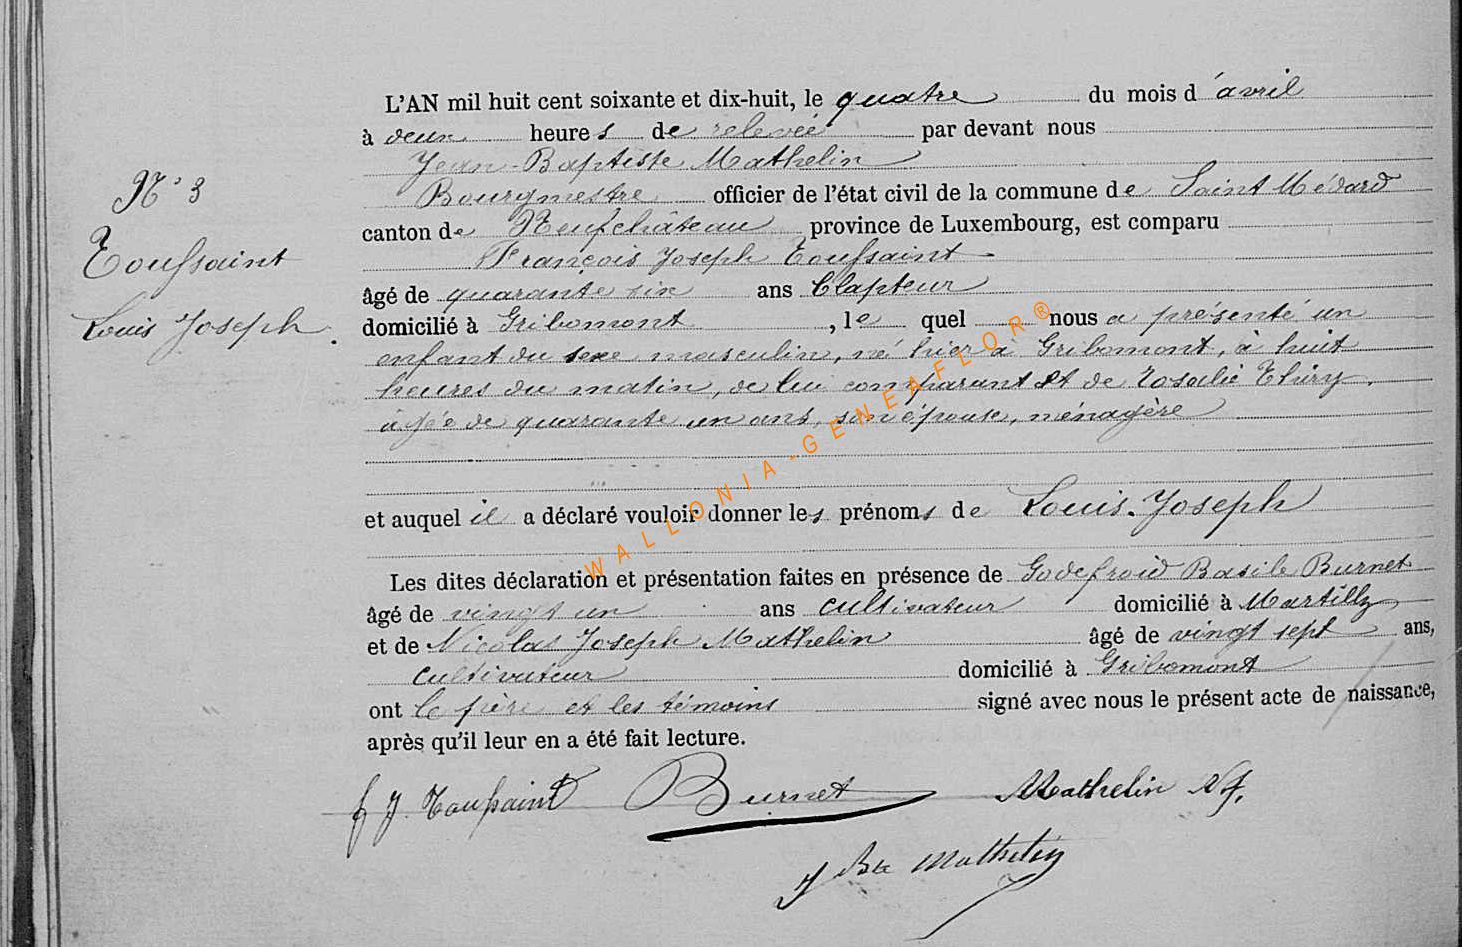 L'AN mil huit cent soixante et dix-huit, le quatre du mois d'avril
à deux heures de relevée par devant nous
Jean-Baptiste Mathelin
N° 3
Bourgmestre officier de l'état civil de la commune de Saint Médard
canton de Neufchâteau province de Luxembourg, est comparu
Toussaint
François Joseph Toussaint
âgé de quarante six ans Clapteur
Louis Joseph.
domicilié à Gribomont, le quel nous a présenté un
enfant du sexe masculin, né hier à Gribomont, à huit
heures du matin, de lui comparant et de Rosalie Thiry,
âgée de quarante un ans, son épouse, ménagère
et auquel il a déclaré vouloir donner les prénoms de Louis-Joseph
WALLONIA-GENEAFLOR®
Les dites déclaration et présentation faites en présence de Godefroid Basile Burnet
âgé de vingt un ans cultivateur domicilié à Martilly
et de Nicolas Joseph Mathelin âgé de vingt sept ans,
cultivateur domicilié à Gribomont
ont le père et les témoins signé avec nous le présent acte de naissance,
après qu'il leur en a été fait lecture.
f J Toussaint Burnet Mathelin NJ.
J Bte Mathelin